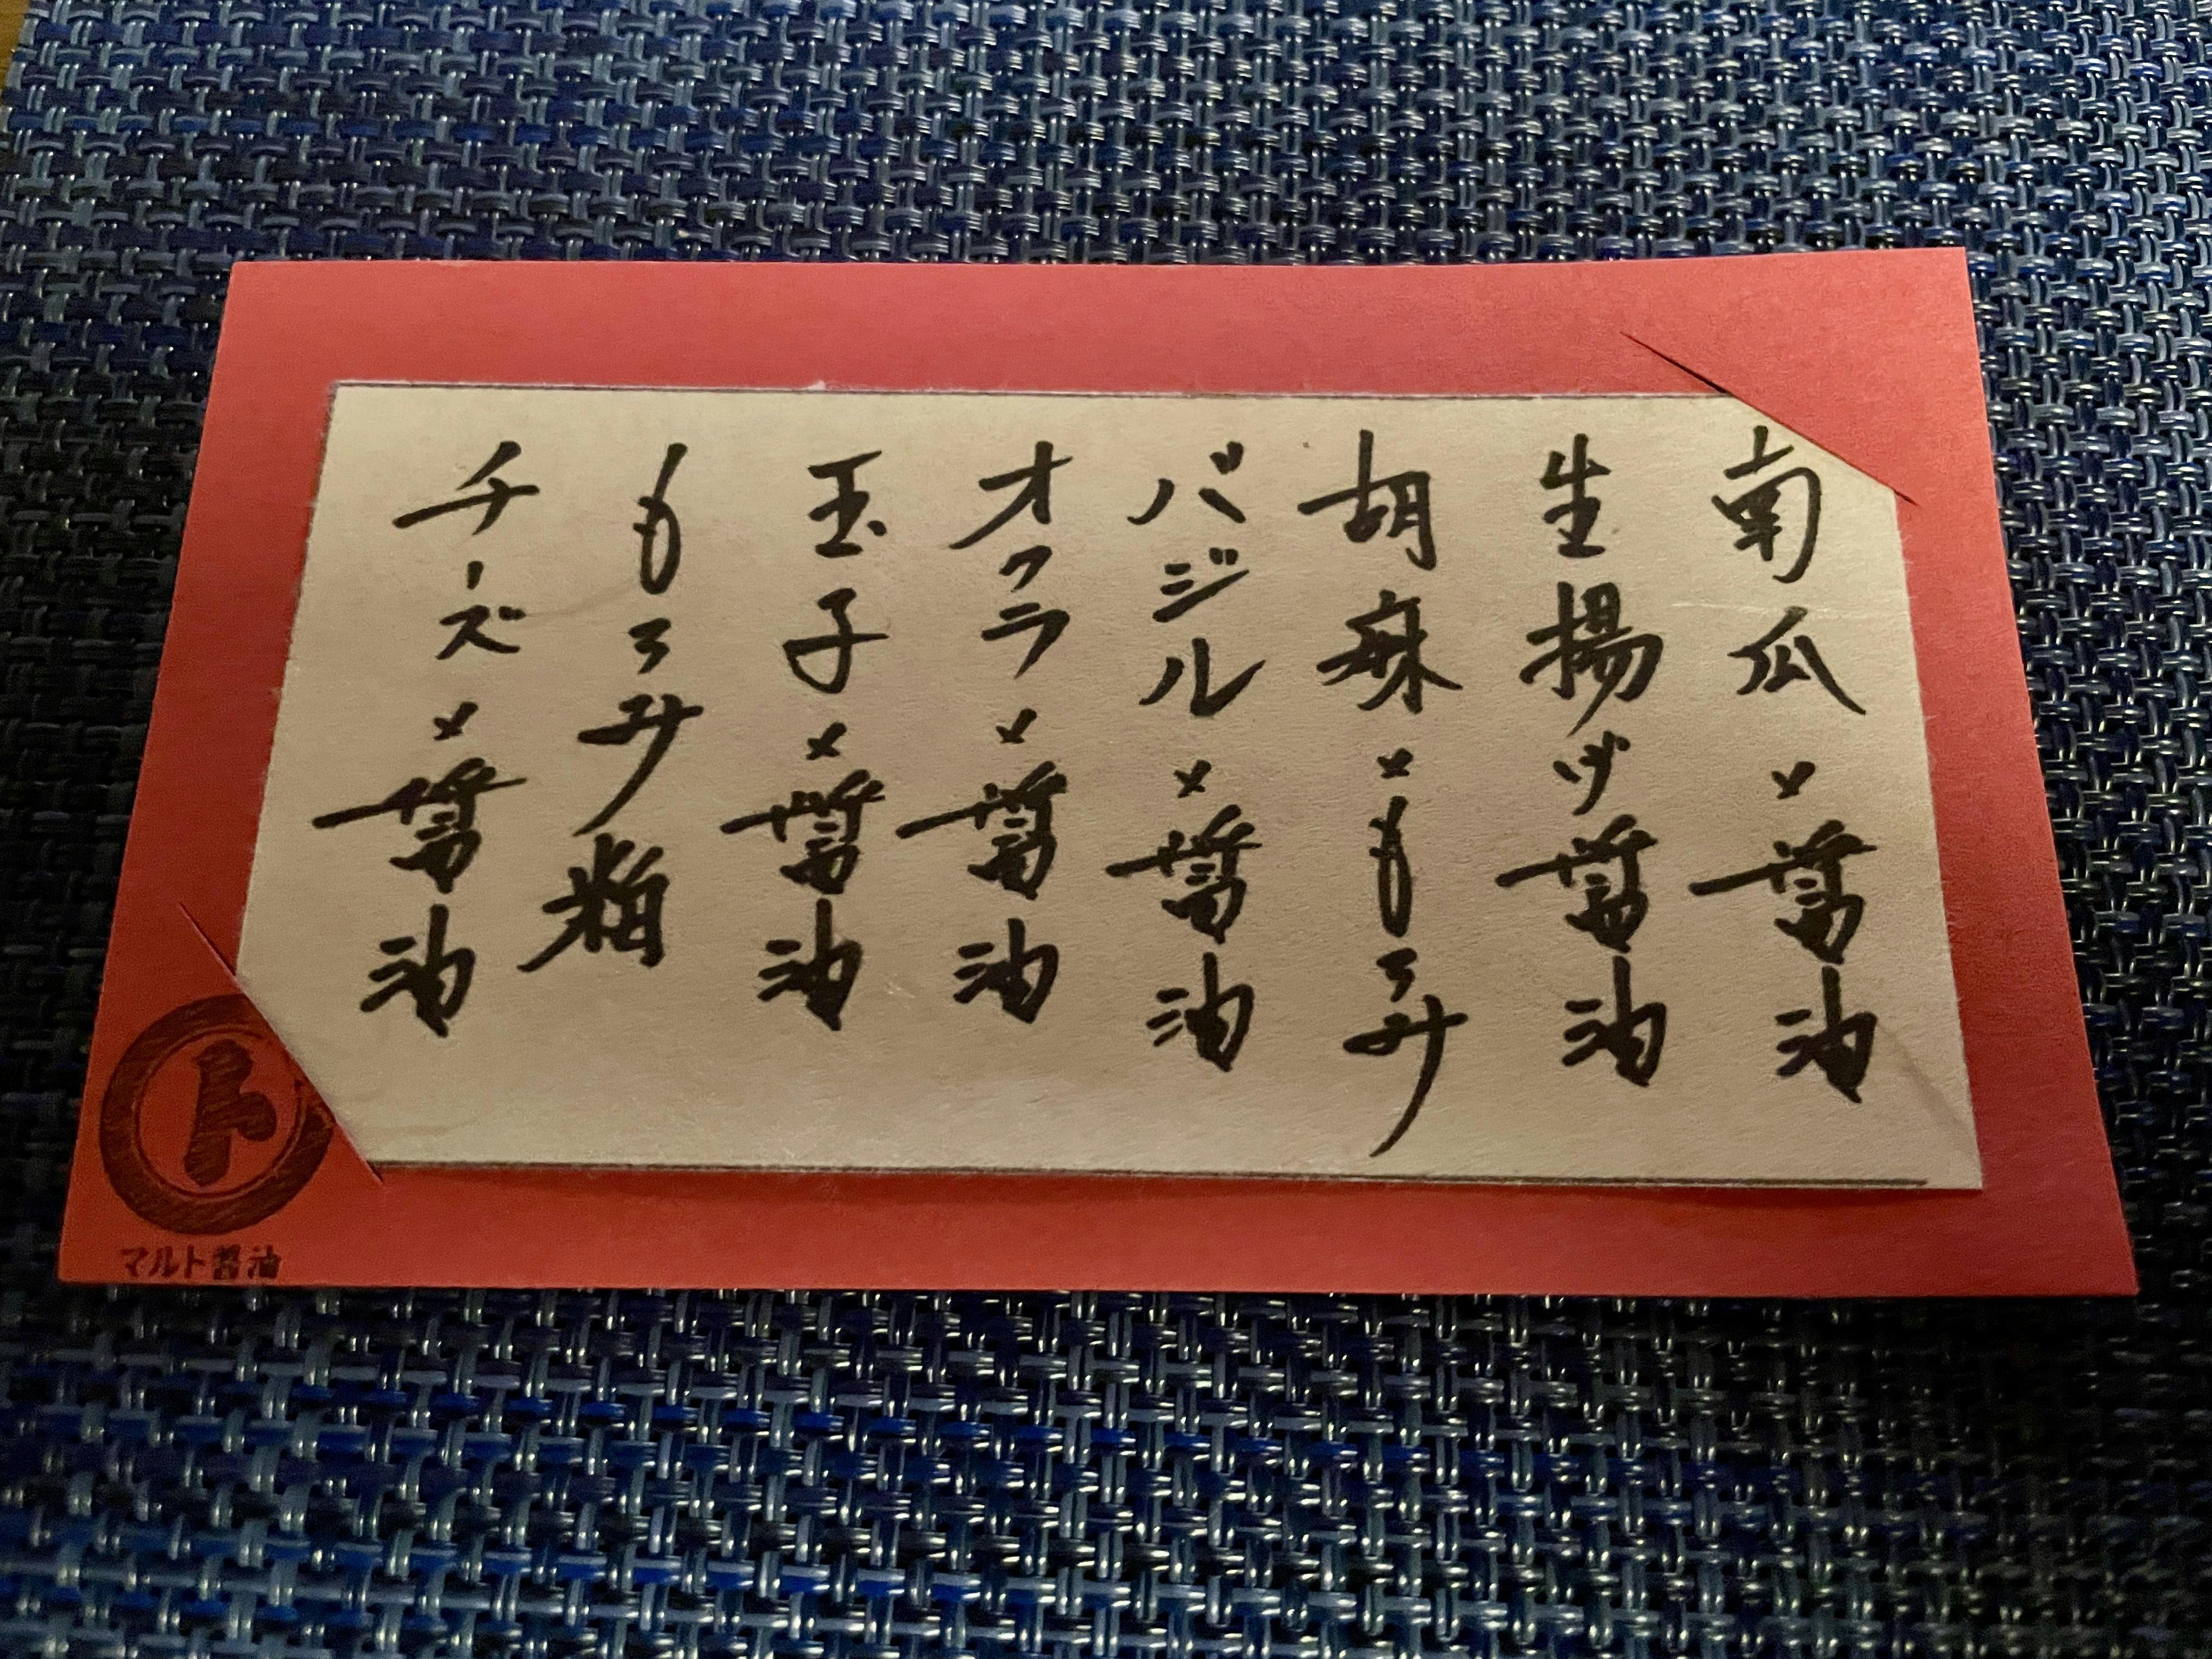 南瓜×醤油
生揚げ醤油
胡麻×もろみ
バジル×醤油
オクラ×醤油
玉子×醤油
もろみ粕
チーズ×醤油
ト
マルト醤油